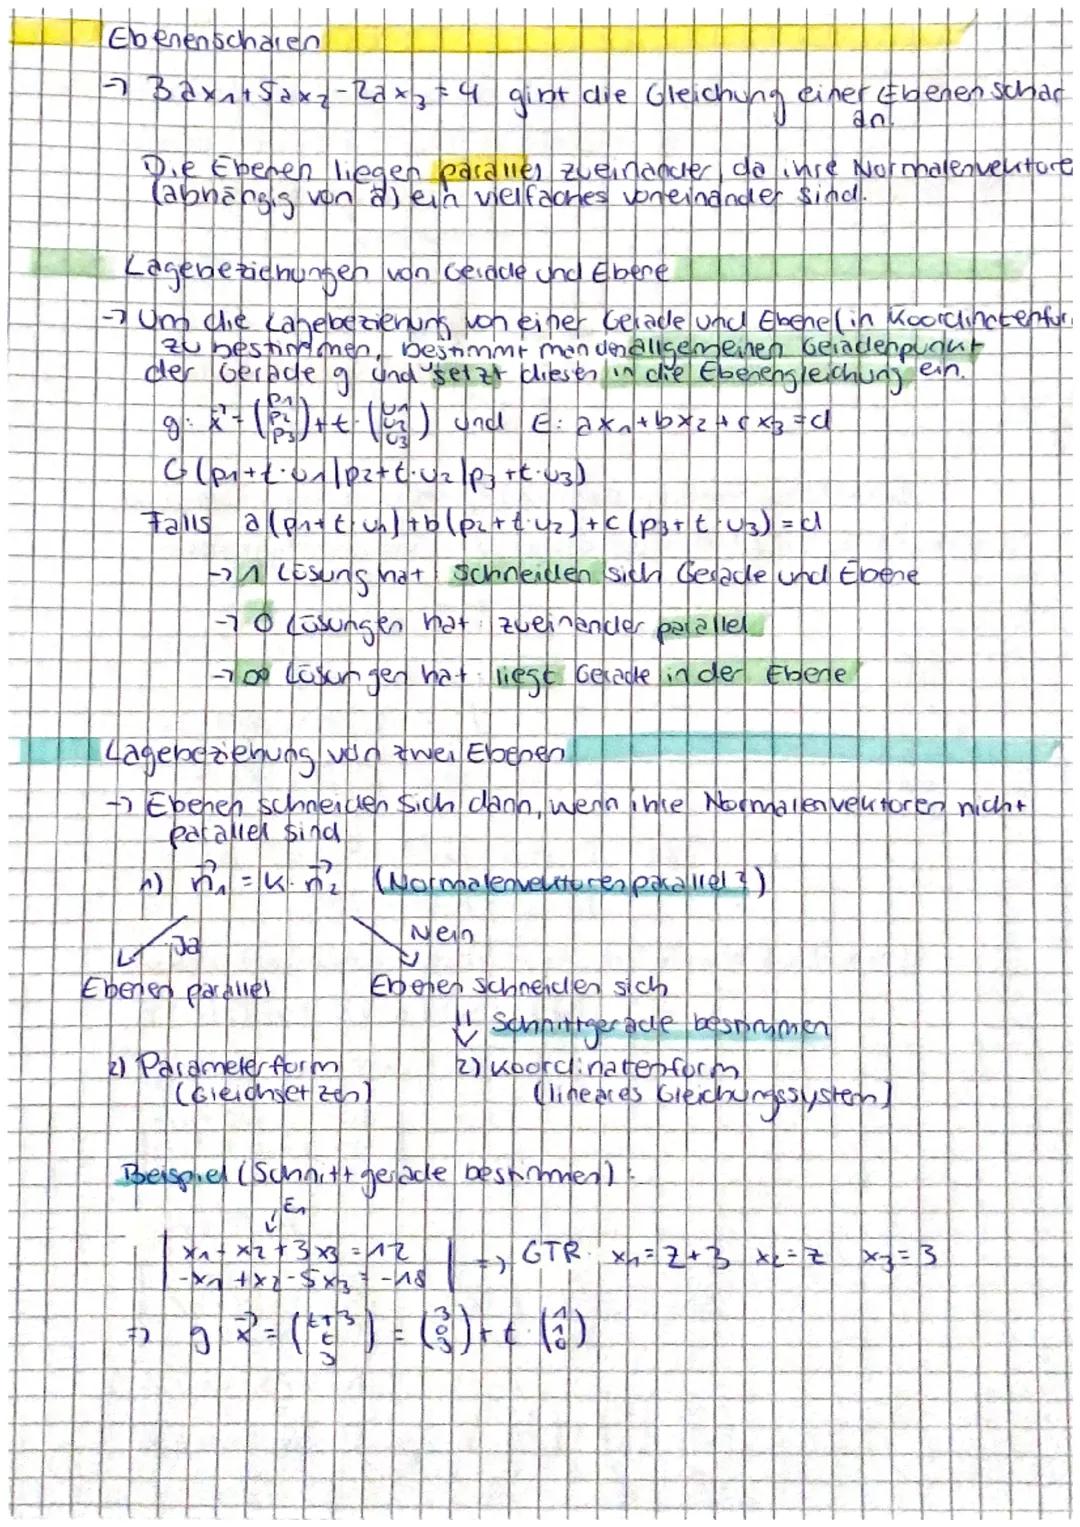 Ebenenscharen
→ 3ax₁+5ax₂-2ax₃=4 gibt die Gleichung einer Ebenenschar
an.
Die Ebenen liegen parallel zueinander, da ihre Normalenvektore
(abhängig von a) ein vielfaches voneinander sind.
Lagebeziehungen von Gerade und Ebene
→ Um die Lagebeziehung von einer Gerade und Ebene (in Koordinatenfor
zu bestimmen, bestimmt man den allgemeinen Geradenpunkt
der Gerade g und setzt diesen in die Ebenengleichung ein.
g: x⃗ = (p₁ p₂ p₃) + t·(u₁ u₂ u₃) und E: ax₁+bx₂+cx₃=d
G(p₁+t·u₁|p₂+t·u₂|p₃+t·u₃)
Falls a(p₁+t·u₁)+b(p₂+t·u₂)+c(p₃+t·u₃)=d
→ 1 Lösung hat: schneiden sich Gerade und Ebene
→ 0 Lösungen hat: zueinander parallel
→ ∞ Lösungen hat: liegt Gerade in der Ebene
Lagebeziehung von zwei Ebenen
→ Ebenen schneiden sich dann, wenn ihre Normalenvektoren nicht
parallel sind
1) n⃗₁ = k·n⃗₂ (Normalenvektoren parallel?)
Ja Nein
Ebenen parallel Ebenen schneiden sich
⇓ Schnittgerade bestimmen
2) Parameterform 2) Koordinatenform
(Gleichsetzen) (lineares Gleichungssystem)
Beispiel (Schnittgerade bestimmen):
E₁
| x₁+x₂+3x₃=12 | ⇒ GTR: x₁=z+3 x₂=z x₃=3
| -x₁+x₂-5x₃=-18 |
⇒ g: x⃗ = (t+3 t 3) = (3 0 3) + t·(1 1 0)